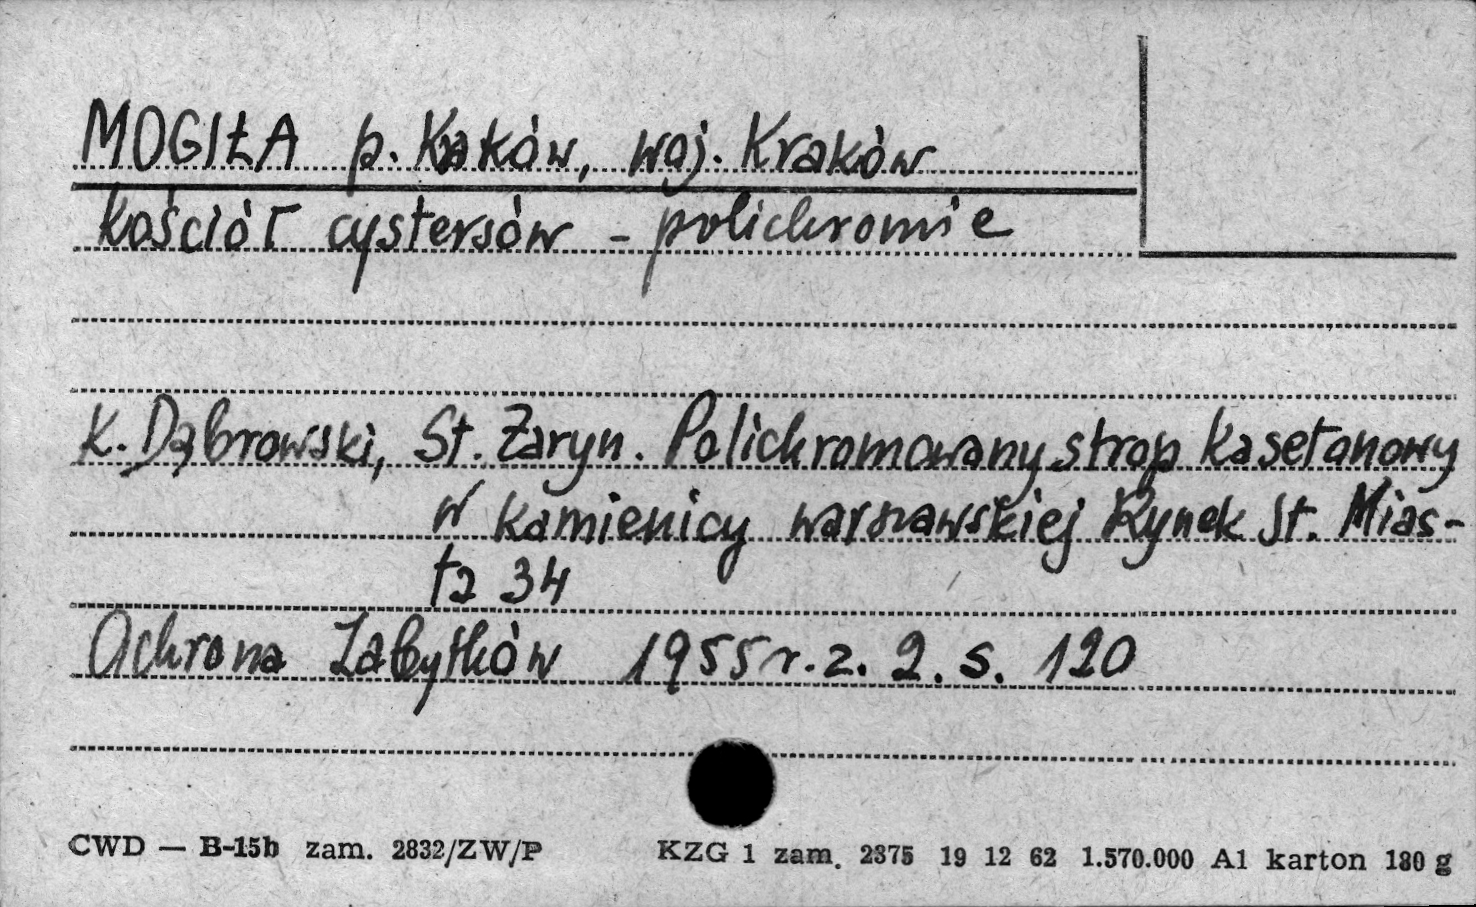 MOGIŁA p. Kraków, woj. Kraków
kościół cystersów - polichromie
K. Dąbrowski, St. Żaryn. Polichromowany strop kasetonowy
w kamienicy warszawskiej Rynek St. Mias-
ta 34
Ochrona Zabytków 1955 r. z. 2. s. 120
CWD — B-15b zam. 2832/ZW/P KZG 1 zam. 2375 19 12 62 1.570.000 A1 karton 180 g